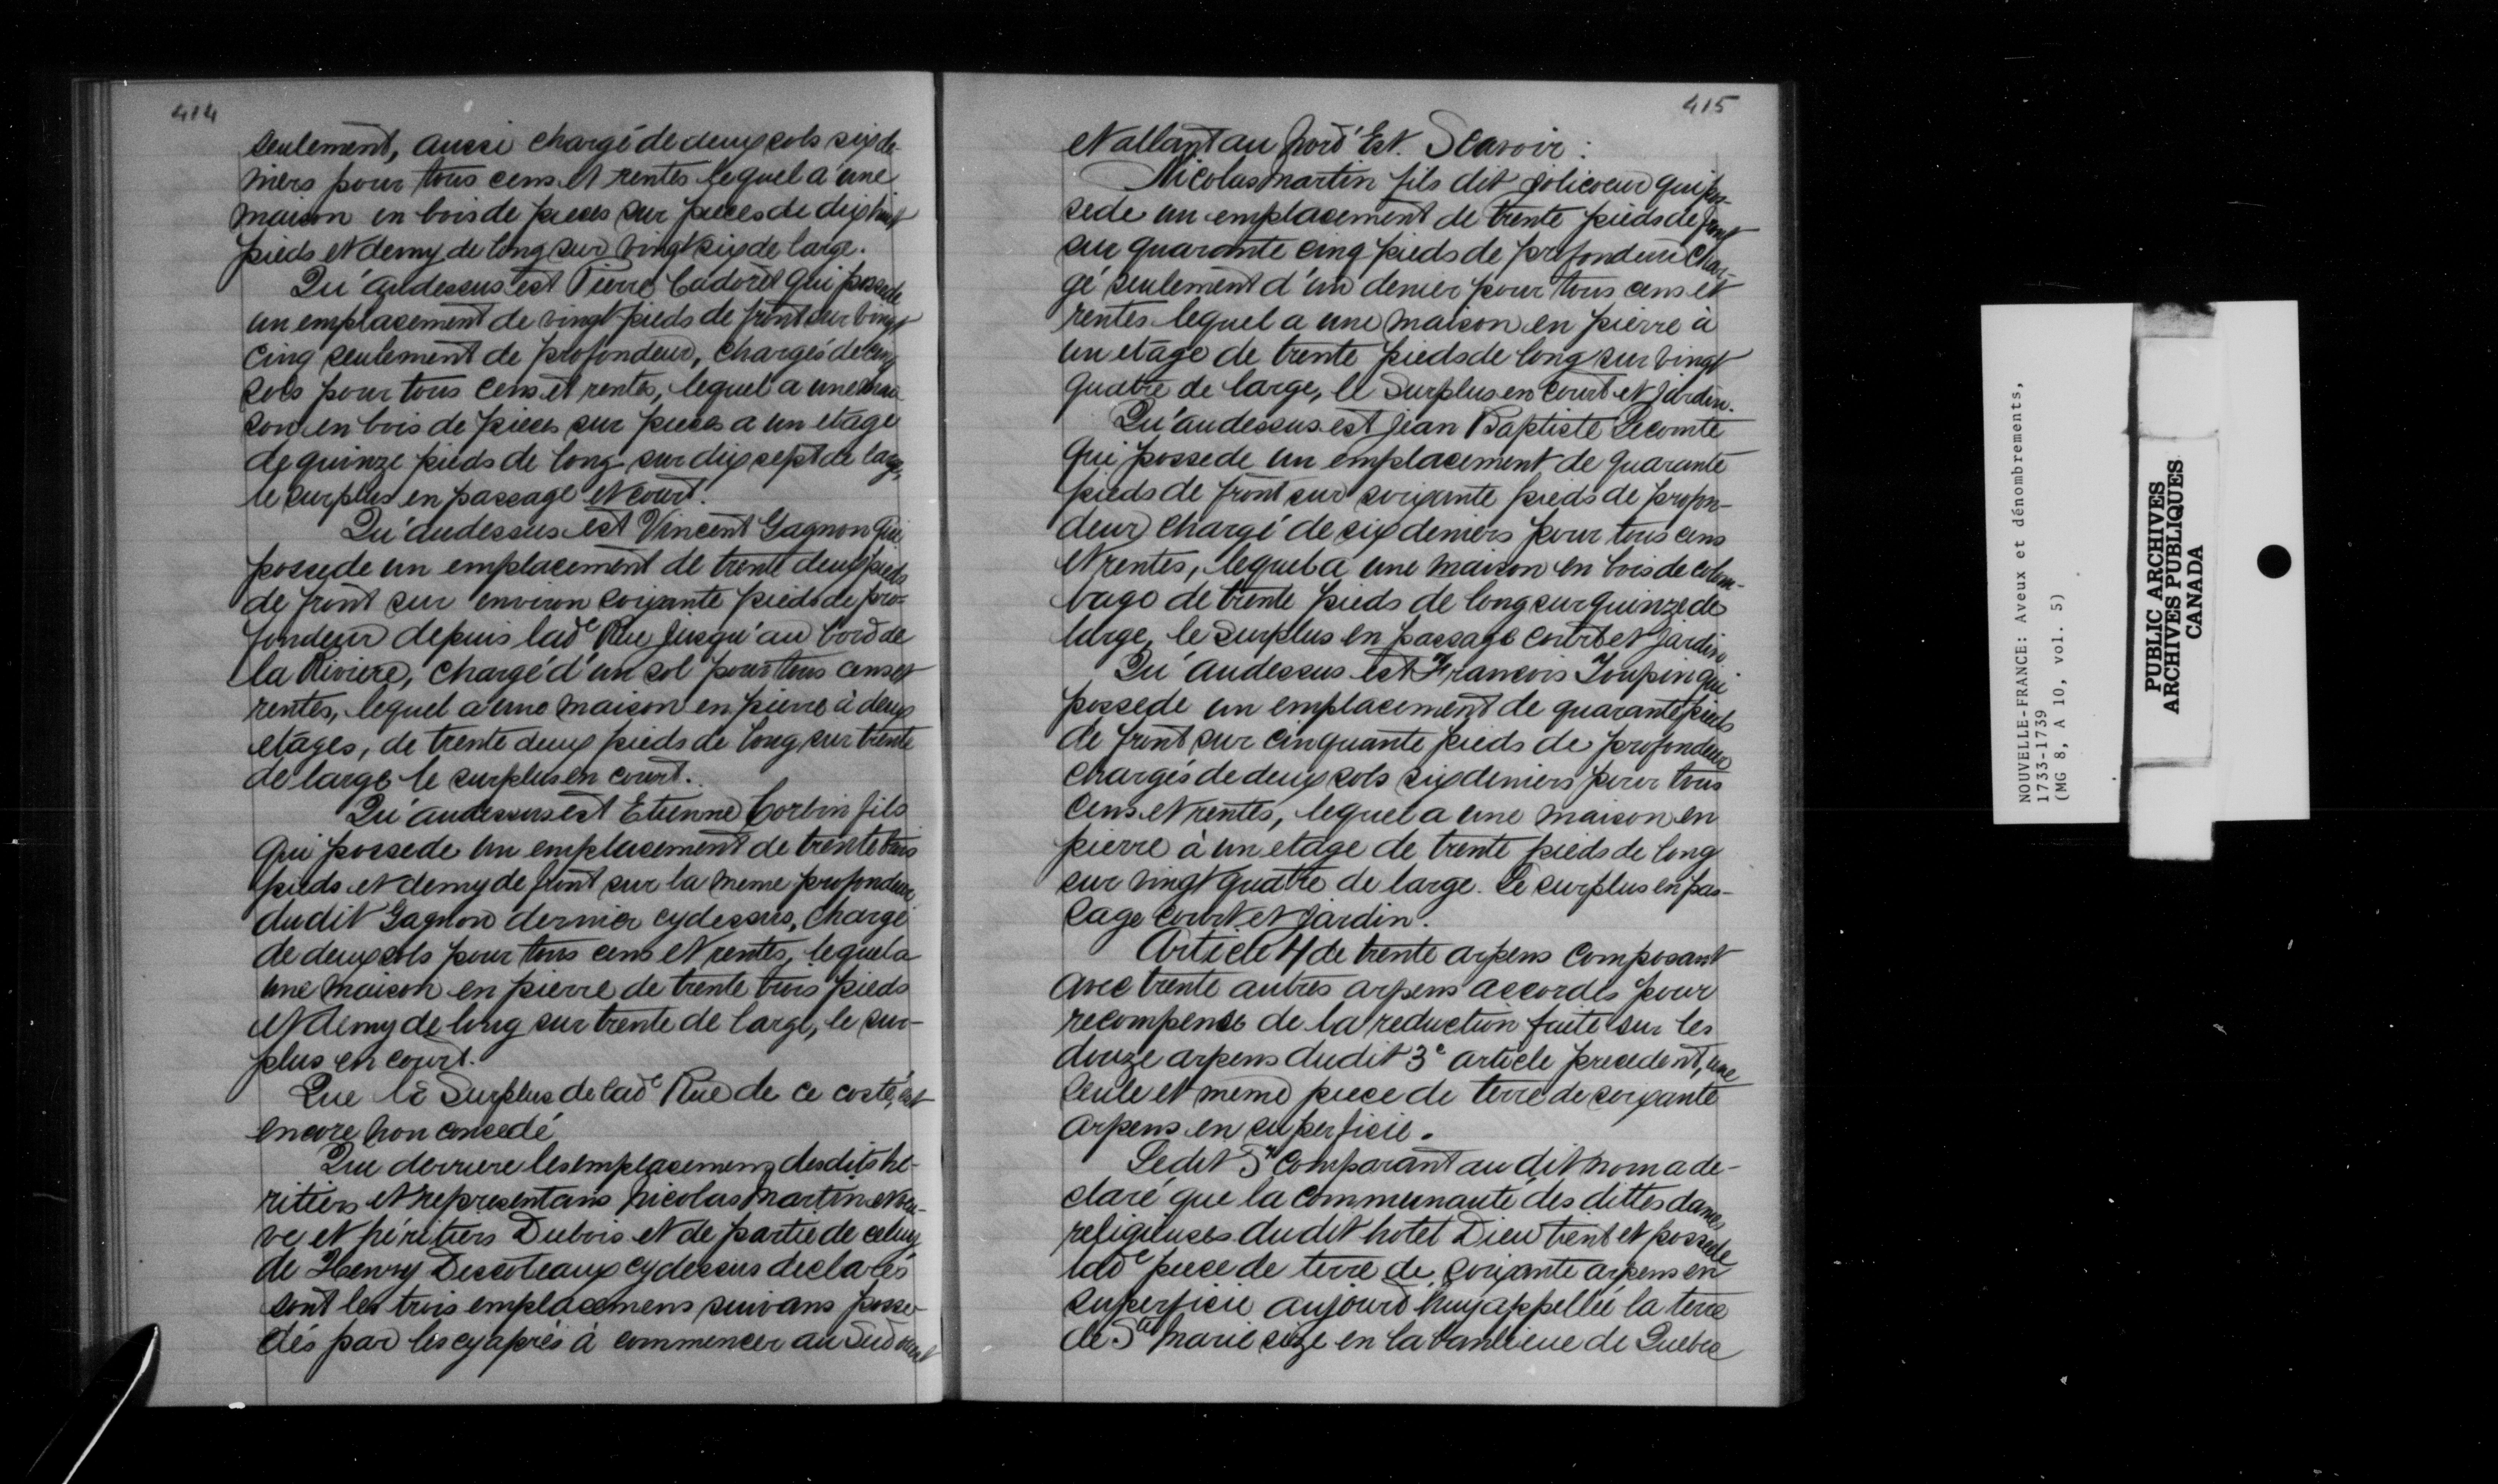 414
seulement, aussi chargé de deux sols six de-
niers pour tous cens et rentes lequel a une
maison en bois de pieces sur pieces de dix huit
pieds et demy de long sur vingt six de large.
Qu'audessus est Pierre Cadoret qui possede
un emplacement de vingt pieds de front sur vingt
cinq seulement de profondeur, chargés de cinq
sols pour tous cens et rentes, lequel a une mai-
son en bois de pieces sur pieces a un etage
de quinze pieds de long sur dix sept de large,
le surplus en passage et court.
Qu'audessus est Vincent Gagnon qui
possede un emplacement de trente deux pieds
de front sur environ soixante pieds de pro-
fondeur depuis lade Rue jusqu'au bord de
la Riviere, chargé d'un sol pour tous cens et
rentes, lequel a une maison en pierre à deux
etages, de trente deux pieds de long sur trente
de large le surplus en court.
Qu'audessus est Etienne Corbin fils
qui possede un emplacement de trente trois
pieds et demy de front sur la meme profondeur
dudit Gagnon dernier cydessus, chargé
de deux sols pour tous cens et rentes, lequel a
une maison en pierre de trente trois pieds
et demy de long sur trente de large, le sur-
plus en court.
Que le Surplus de lade Rue de ce costé, est
encore non concedé
Que derriere les emplacemens desdits hé-
ritiers et representans Nicolas Martin et veu-
ve et héritiers Dubois et de partie de celuy
de Henry Descoteaux cydessus declarés
sont les trois emplacemens suivans posse-
dés par les cyaprès à commencer au Sud ouest
415
et allant au Nord Est. Scavoir:
Nicolas Martin fils dit Jolicoeur qui pos-
sede un emplacement de trente pieds de front
sur quarante cinq pieds de profondeur char-
gé seulement d'un denier pour tous cens et
rentes lequel a une maison en pierre à
un etage de trente pieds de long sur vingt
quatre de large, le surplus en court et jardin.
Qu'audessus est Jean Baptiste Lecomte
qui possede un emplacement de quarante
pieds de front sur soixante pieds de profon-
deur chargé de six deniers pour tous cens
et rentes, lequel a une maison en bois de colom-
bage de trente pieds de long sur quinze de
large, le surplus en passage court et jardin
Qu'audessus est Francois Toupin qui
possede un emplacement de quarante pieds
de front sur cinquante pieds de profondeur
chargés de deux sols six deniers pour tous
cens et rentes, lequel a une maison en
pierre à un etage de trente pieds de long
sur vingt quatre de large. Le surplus en pas-
sage court et jardin.
Article 4 de trente arpens composant
avec trente autres arpens accordés pour
recompense de la reduction faite sur les
douze arpens dudit 3e article precedent, une
seule et meme piece de terre de soixante
arpens en superficie.
Ledit Sr Comparant audit nom a de-
claré que la communauté des dittes dames
religieuses dudit hotel Dieu tient et possede
lade piece de terre de soixante arpens en
superficie aujourd'huy appellée la terre
de Ste Marie size en la banlieue de Quebec
NOUVELLE-FRANCE: Aveux et dénombrements,
1733-1739
(MG 8, A 10, vol. 5)
PUBLIC ARCHIVES
ARCHIVES PUBLIQUES
CANADA